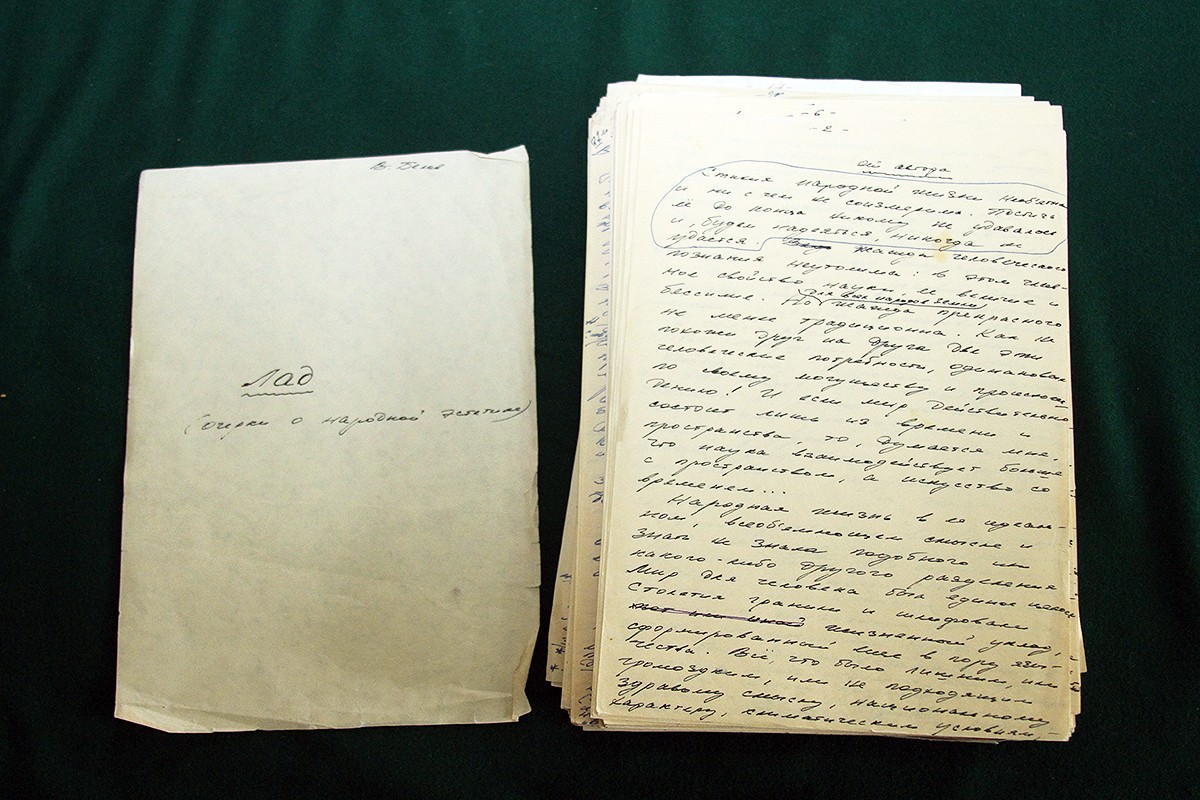 В. Бело
Лад
(очерки о народной эстетике)
- 6 -
- 2 -
От автора
Стихия народной жизни необъятна
и ни с чем не соизмерима. Постичь
её до конца никому не удавалось
и, будем надеяться, никогда не
удастся. Жажда человеческого
познания неутолима: в этом глав-
ное свойство науки, её величие и
для всех народов Земли
бессилие. Но жажда прекрасного
не менее традиционна. Как не
похожи друг на друга две эти
человеческие потребности, одинаковые
по своему могуществу и происхож-
дению! И если мир действительно
состоит лишь из времени и
пространства, то, думается мне,
что наука взаимодействует больше
с пространством, а искусство со
временем...
Народная жизнь в её идеаль-
ном, всеобъемлющем смысле и
знать не знала подобного или
какого-либо другого разделения
Мир для человека был единое целое
Столетия гранили и шлифовали
жизненный уклад,
сформированный ещё в пору язы-
чества. Всё, что было лишним, или
громоздким, или не подходящим
здравому смыслу, национальному
характеру, климатическим условиям,